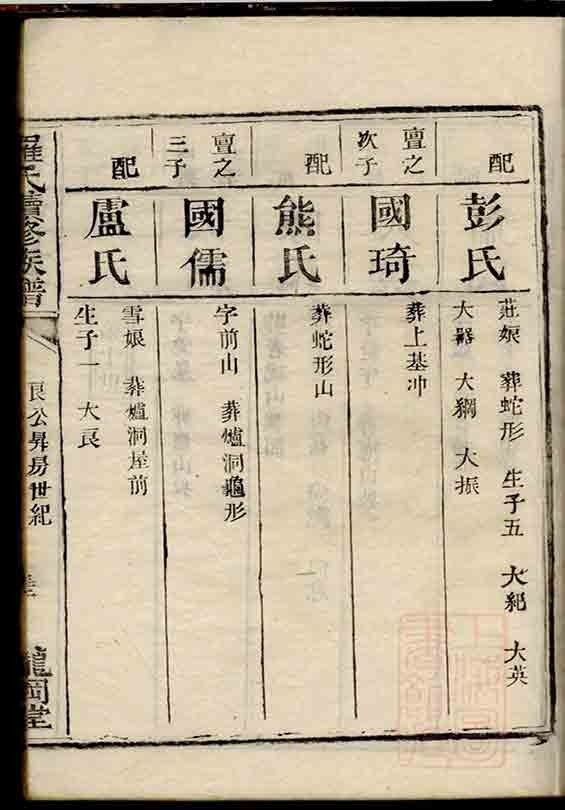 配
彭氏
莊娘 葬蛇形 生子五 大紀 大英
大器 大綱 大振
亶之
次子
國琦
葬上基冲
配
熊氏
葬蛇形山
亶之
三子
國儒
字前山 葬爐洞龜形
配
盧氏
雪娘 葬爐洞屋前
生子一 大良
羅氏續修族譜
良公昇房世紀
龍岡堂